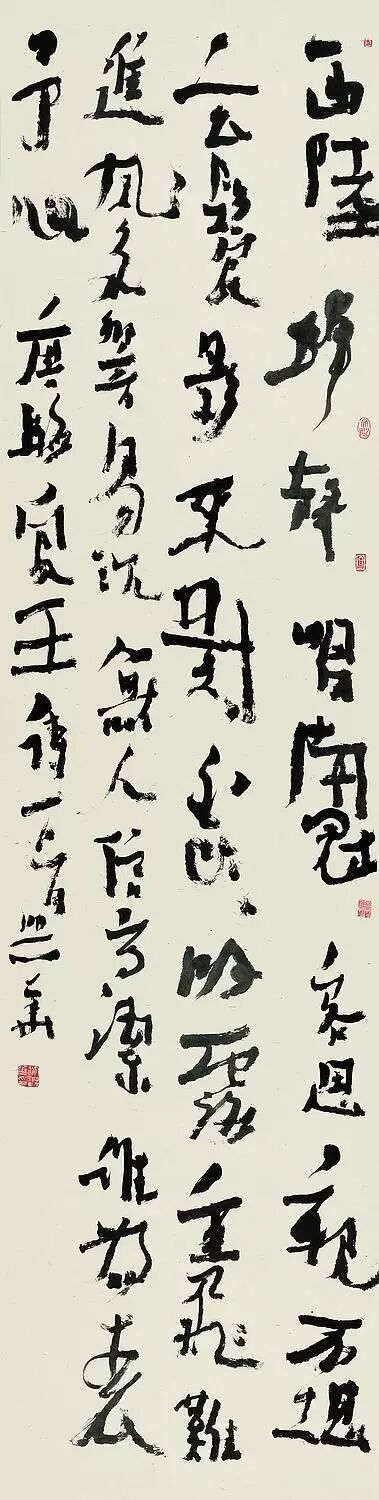 西陸蟬聲唱南冠客思不堪
玄鬢影来對吟露重飛難
進風多響易沉無人信高潔誰為表
予心 唐駱賓王詩一首